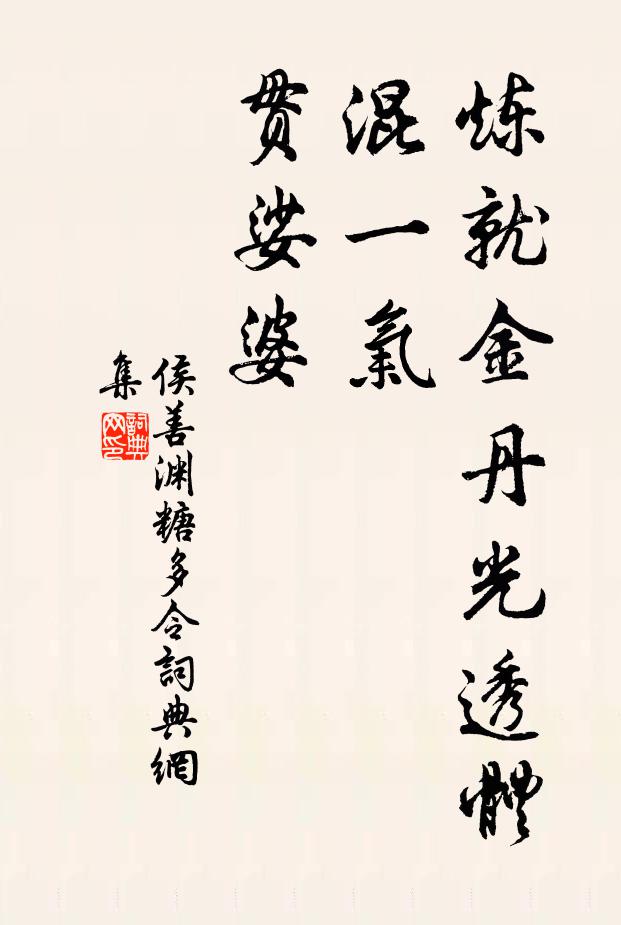 炼就金丹光透體
混一氣
贯娑婆
侯善渊糖多令詞典網
集
詞典
网印